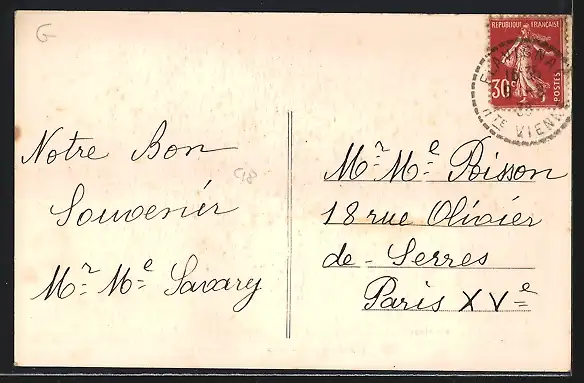 G
RÉPUBLIQUE FRANÇAISE
30c
POSTES
Hte VIENNE
Notre Bon
Souvenir
Mr Me Savary
C18
Mr Me Poisson
18 rue Olivier
de-Serres
Paris XVe